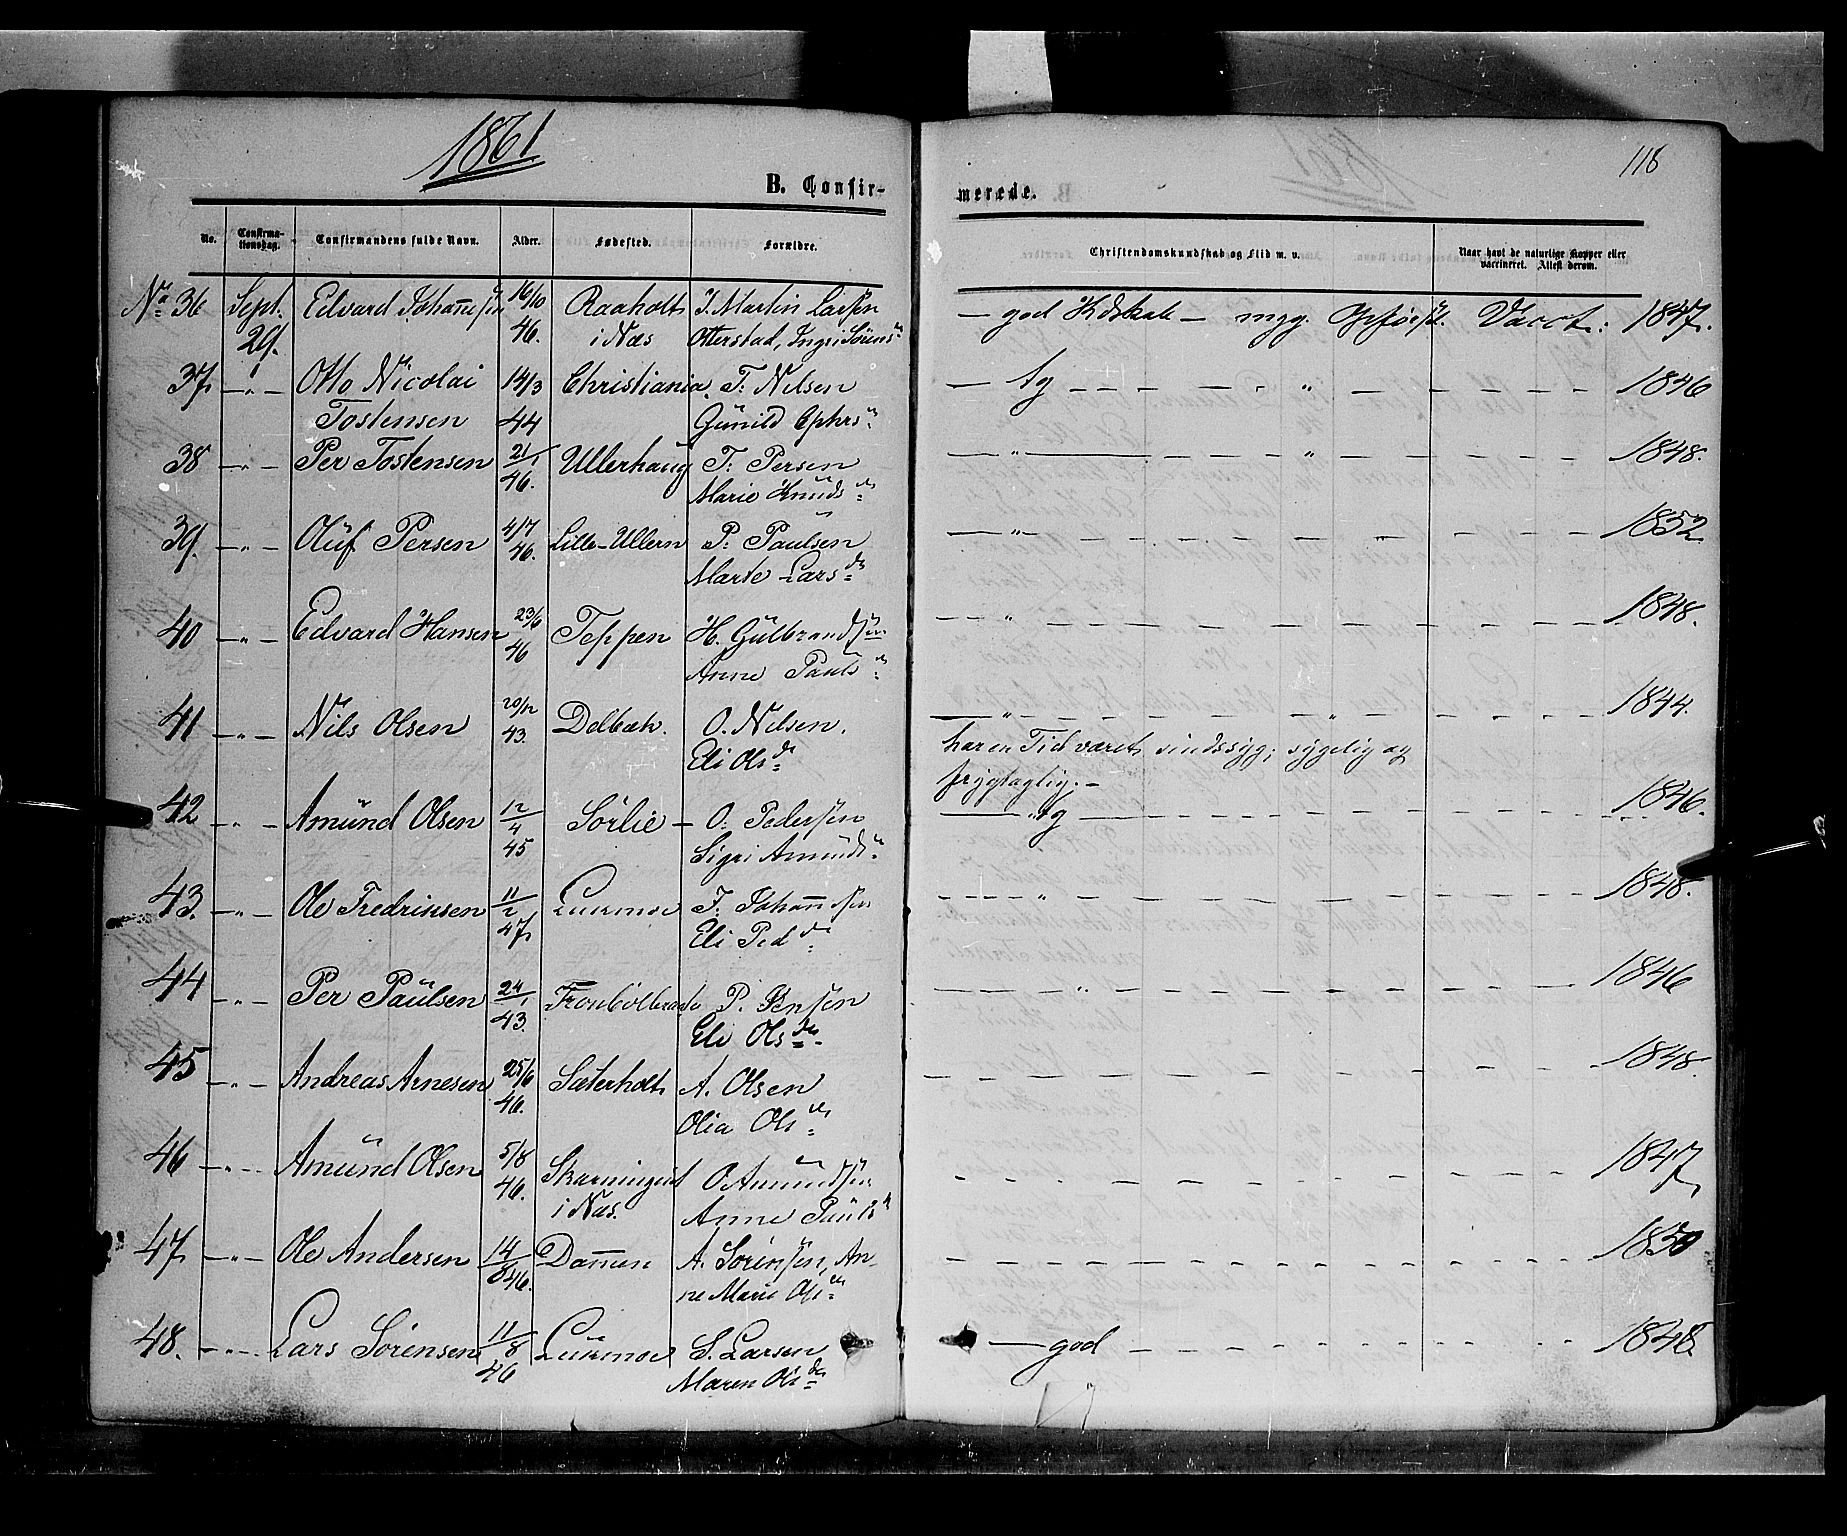 1861
118
B. Confir-
merede.
No.
Confirma-
tionsdag.
Confirmandens fulde Navn.
Alder.
Fødested.
Forældre.
Christendomskundskab og Flid m. v.
Naar havt de naturlige Kopper eller
vaccineret. Attest derom.
No 36 Sept. 29. Edvard Johannesen 16/10 46. Raaholt J. Martin Larsen — god Kdskab — mgg. Opførsl. Vacct: 1847.
i Næs Otterstad, Ingri Sørens
37 — " — Otto Nicolai 14/3 Christiania T. Nilsen — tg — — — " — — 1846
Tostensen 44 Gunild Ephrs
38 — " — Per Tostensen 21/1 46. Ullerhaug T. Persen — " — " — 1848.
Marie Knudsd
39. — " — Oluf Persen 4/7 46. Lille-Ullern P. Paulsen — " — 1852
Marte Larsd
40 — " — Edvard Hansen 23/6 46 Teppen H. Gulbrandsen — " — 1848.
Anne Paulsd
41 — " — Nils Olsen 20/12 43. Delbæk. O. Nilsen. — " — " — 1844.
Eli Olsd har en Tid været sindssyg; sygelig og
frygtagtig. —
42 — " — Amund Olsen 12/4 45 Sørlie — O. Pedersen — tg — 1846.
Sigri Amunds
43. — " — Ole Fredriksen 11/2 47 Lukmoe F. Johannesen — " — 1848.
Eli Pedd
44 — " — Per Paulsen 24/1 43. P. Jensen — " — 1846
Eli Olsd
45 — " — Andreas Arnesen 25/6 46. Sæterholt A. Olsen — 1848.
Olia Olsd
46 — " — Amund Olsen 5/8 46. O. Amundsen — 1847
i Næs. Anne Paulsd
47 — " — Ole Andersen 14/8 46. Dammen A. Sørensen, An- — 1850
ne Marie Olsd
48. — " — Lars Sørensen 11/8 46 Lukmoe S. Larsen — god — 1848.
Maren Olsd